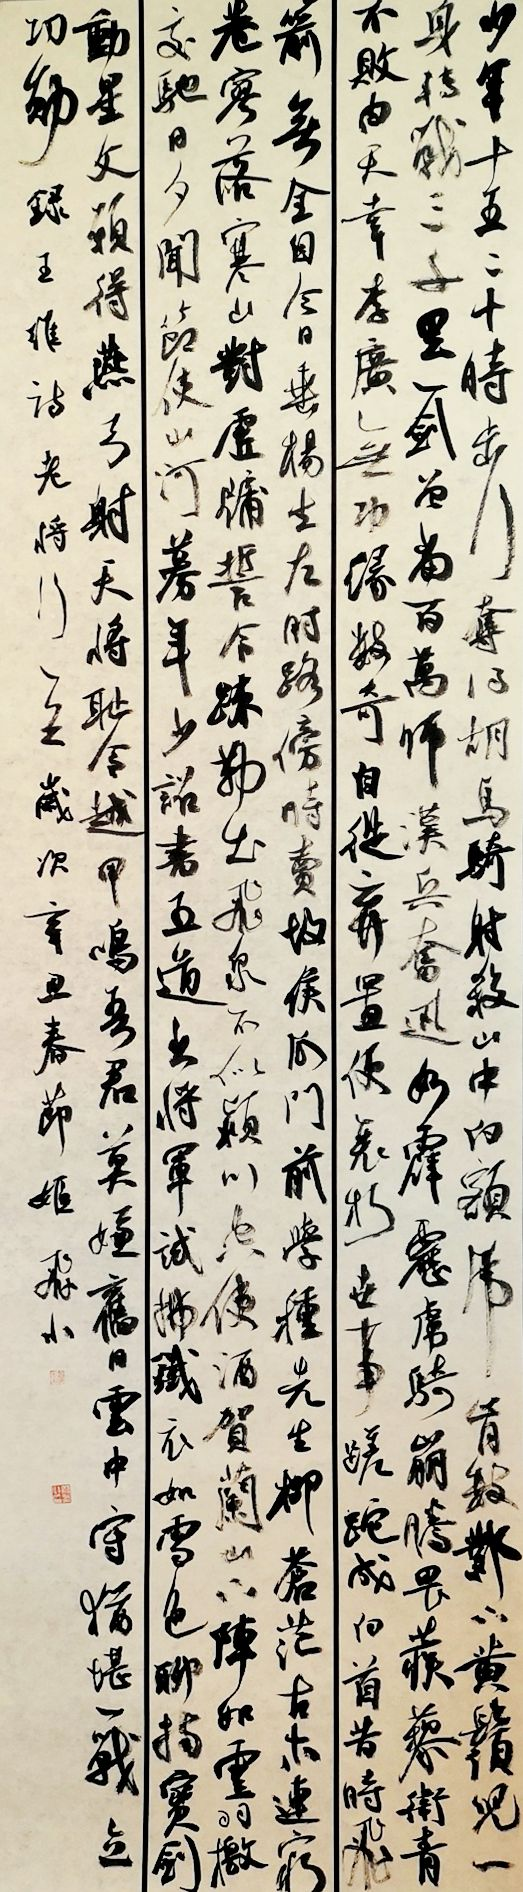 少年十五二十時步行奪得胡馬騎射殺山中白額虎肯數鄴下黃鬚兒一
身轉戰三千里一劍曾當百萬師漢兵奮迅如霹靂虜騎崩騰畏蒺藜衛青
不敗由天幸李廣無功緣數奇自從棄置便衰朽世事蹉跎成白首昔時飛
箭無全目今日垂楊生左肘路傍時賣故侯瓜門前學種先生柳蒼茫古木連窮
巷寥落寒山對虛牖誓令踈勒出飛泉不似潁川空使酒賀蘭山下陣如雲羽檄
交馳日夕聞節使山河募年少詔書五道出將軍試拂鐵衣如雪色聊持寶劍
動星文願得燕弓射天將恥令越甲鳴吾君莫嫌舊日雲中守猶堪一戰立
功勳 錄王維詩老將行一首歲次辛丑春節姬飛小